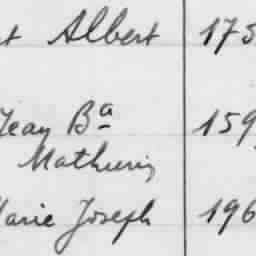 t Albert 175
Jean Bª
Mathurin 159
Marie Joseph 196